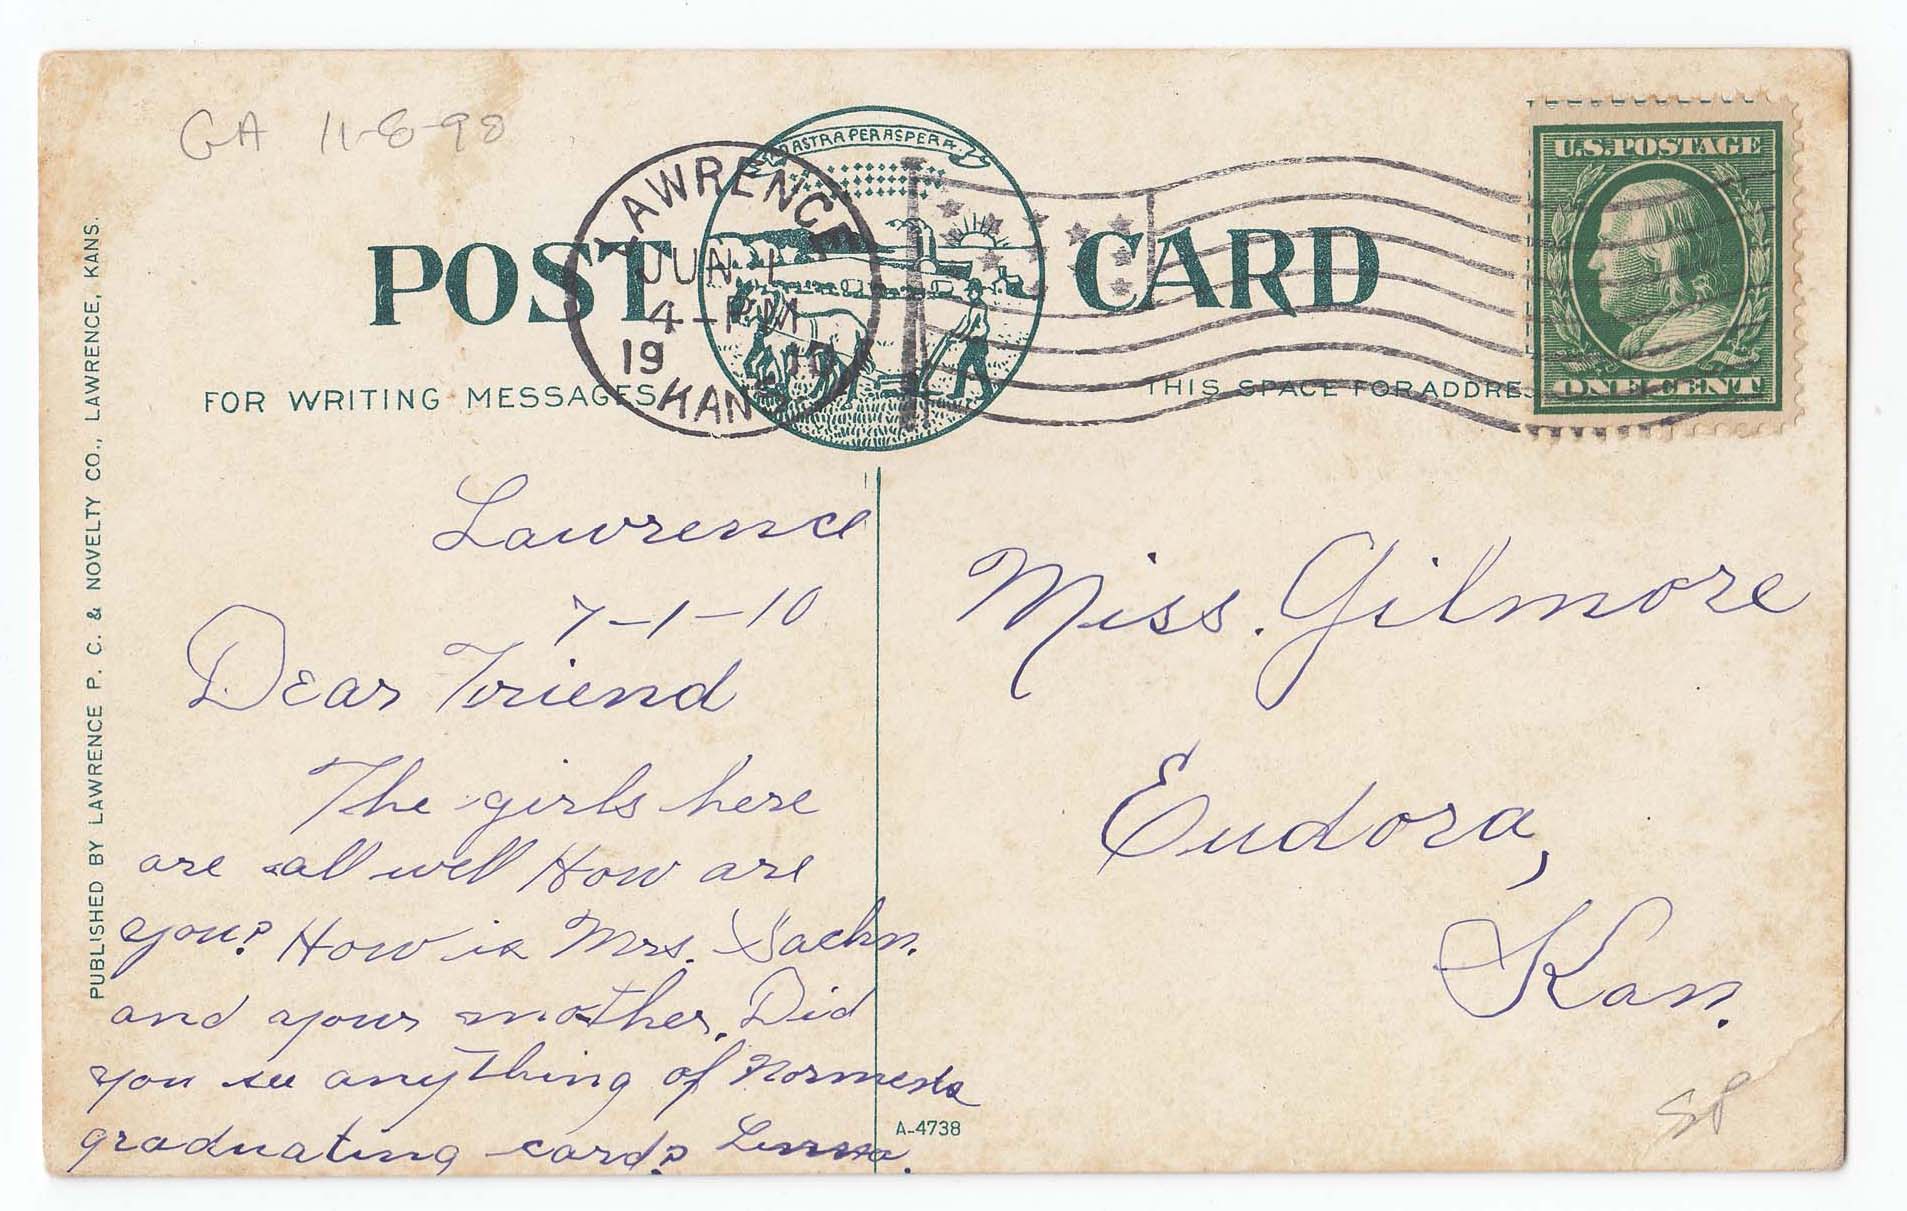 GA 11-8-98
AD ASTRA PER ASPERA
U.S. POSTAGE
ONE CENT
LAWRENCE
JUN 1
4-PM
19
KANS
POST CARD
FOR WRITING MESSAGES
THIS SPACE FOR ADDRE
Lawrence
7-1-10
Dear Friend
The girls here
are all well How are
you? How is Mrs.
and your mother. Did
you see anything of
graduating card?
Miss. Gilmore
Eudora,
Kan.
A-4738
PUBLISHED BY LAWRENCE P. C. & NOVELTY CO., LAWRENCE, KANS.